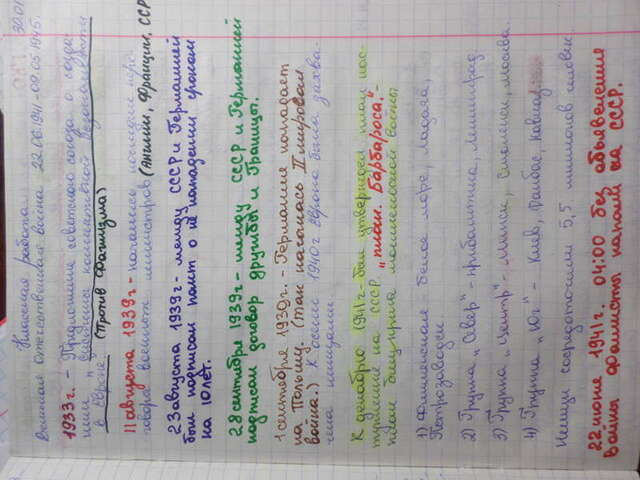 30.01
Классная работа.
Великая Отечественная война 22.06.1941-09.05.1945.
1933г. - Предложение советского союза о созда-
нии системы коллективной безопасности
в Европе (Против Фашизма)
11 августа 1939г - начались
говоры военных министров (Англии, Франции, ССР
23 августа 1939г - между СССР и Германией
был подписан пакт о не нападении сроком
на 10 лет.
28 сентября 1939г - между СССР и Германией
подписан договор дружбы и Границы.
1 сентября 1939г. - Германия нападает
на Польшу. (Так началась II мировая
война.) К осени 1940г Европа была захва-
чена немцами
К декабрю 1941г - был утверждён план нас-
тупления на СССР "план. Барбароса." -
план блицкрига молниеносной войны.
1) Финляндия Белое море, Ладога,
Петрозаводск
2) Группа "Север" - прибалтика, Ленинград
3) Группа "Центр" - Минск, Смоленск, Москва.
4) Группа "Юг" - Киев, Донбас, Кавказ
Немцы сосредоточили 5,5 миллионов человек.
22 июня 1941г. 04:00 без объявления
Войны фашисты напали на СССР.